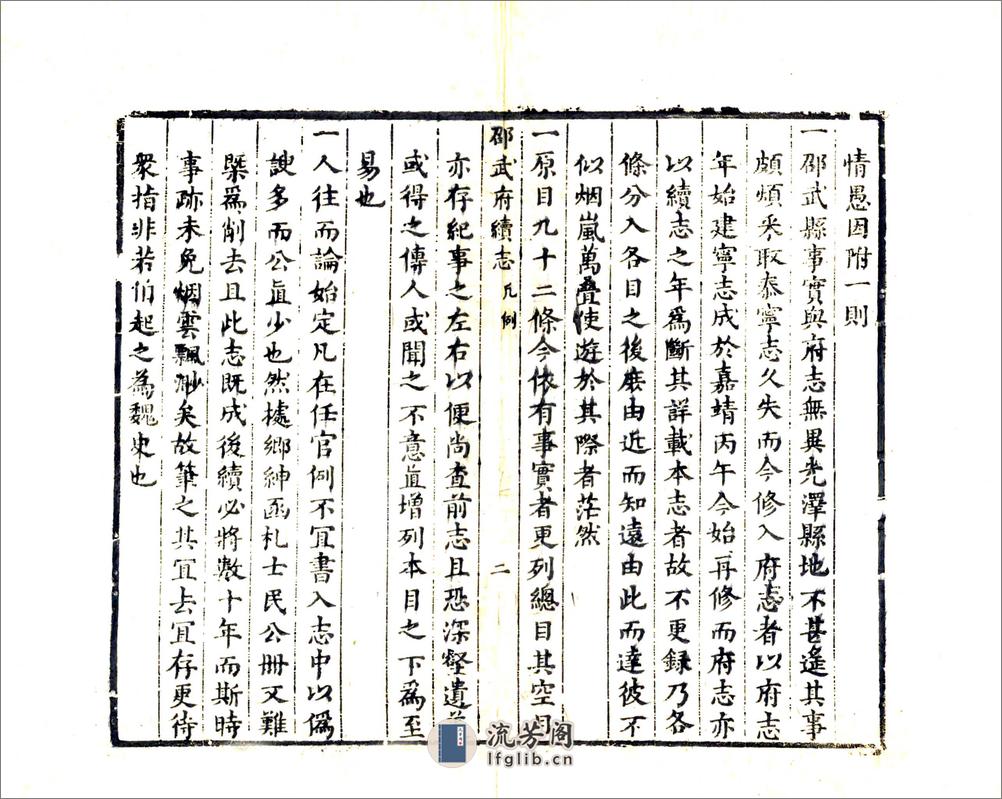 情愚因附一則
一邵武縣事實與府志無異光澤縣地不甚遙其事
頗煩采取泰寧志久失而今修入府志者以府志
年始建寧志成於嘉靖丙午今始再修而府志亦
以續志之年為斷其詳載本志者故不更録乃各
條分入各目之後庻由近而知遠由此而達彼不
似烟嵐萬疊使遊於其際者茫然
一原目九十二條今依有事實者更列總目其空目
邵武府續志 凡例 二
亦存紀事之左右以便尚查前志且恐深壑遺
或得之傳人或聞之不意直增列本目之下爲至
易也
一人往而論始定凡在任官例不宜書入志中以僞
諛多而公眞少也然據鄉紳函札士民公冊又難
槩爲削去且此志既成後續必將數十年而斯時
事跡未免烟雲飄渺矣故筆之其宜去宜存更待
衆指非若伯起之為魏史也
流芳阁
lfglib.cn